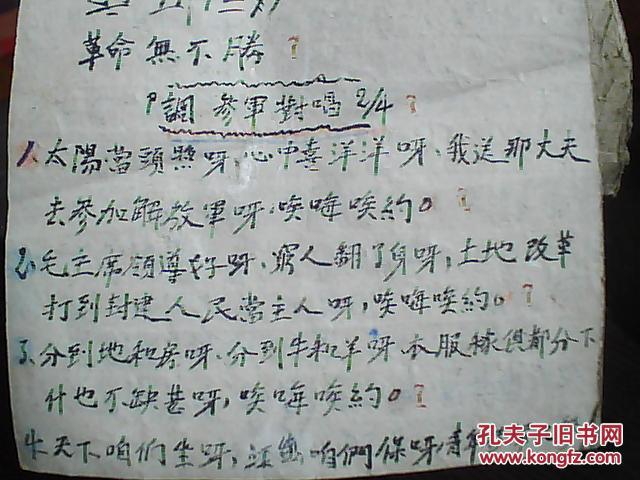 革命無不勝
P調 參軍對唱 2/4
1、太陽當頭照呀、心中喜洋洋呀、我送那丈夫
去參加解放軍呀、唉哞唉約。
2、毛主席領導好呀、窮人翻了身呀，土地改革
打到封建人民當主人呀，唉哞唉約。
3、分到地和房呀、分到牛和羊呀 衣服稼俱都分下
什也不缺甚呀，唉哞唉約。
4、天下咱们坐呀，江山咱們保呀
孔夫子旧书网
www.kongfz.com